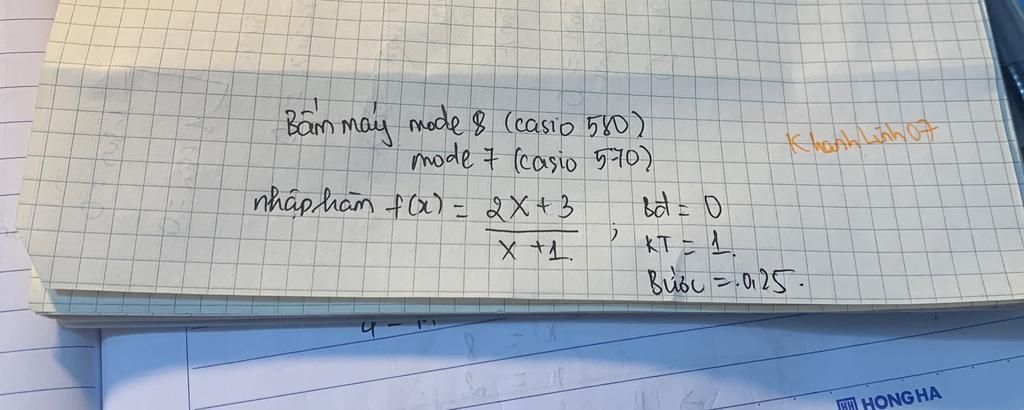 Bấm máy mode 8 (casio 580)
mode 7 (casio 570)
KhanhLinh07
nhập hàm f(x) = 2X + 3 / X + 1 ; Bđ = 0
KT = 1.
Bước = 0,25.
HONG HA